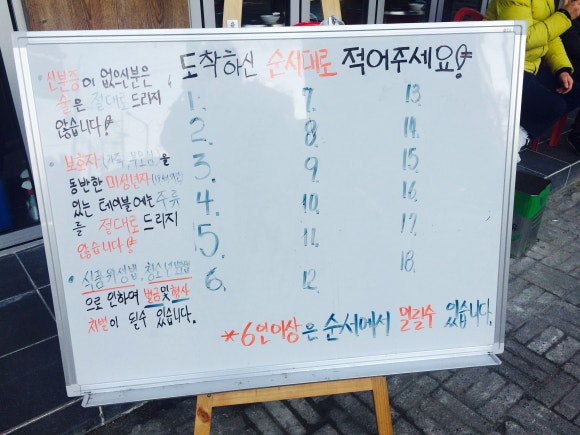 도착하신 순서대로 적어주세요!
신분증이 없으신분은
술은 절대로 드리지
않습니다!
보호자(가족, 부모님)을
동반한 미성년자
있는 테이블에는 주류
를 절대로 드리지
않습니다!
식품위생법, 청소년보호법
으로 인하여 벌금 및 형사
처벌이 될수 있습니다.
1.
2.
3.
4.
5.
6.
7.
8.
9.
10.
11.
12.
13.
14.
15.
16.
17.
18.
*6인이상은 순서에서 밀릴수 있습니다.